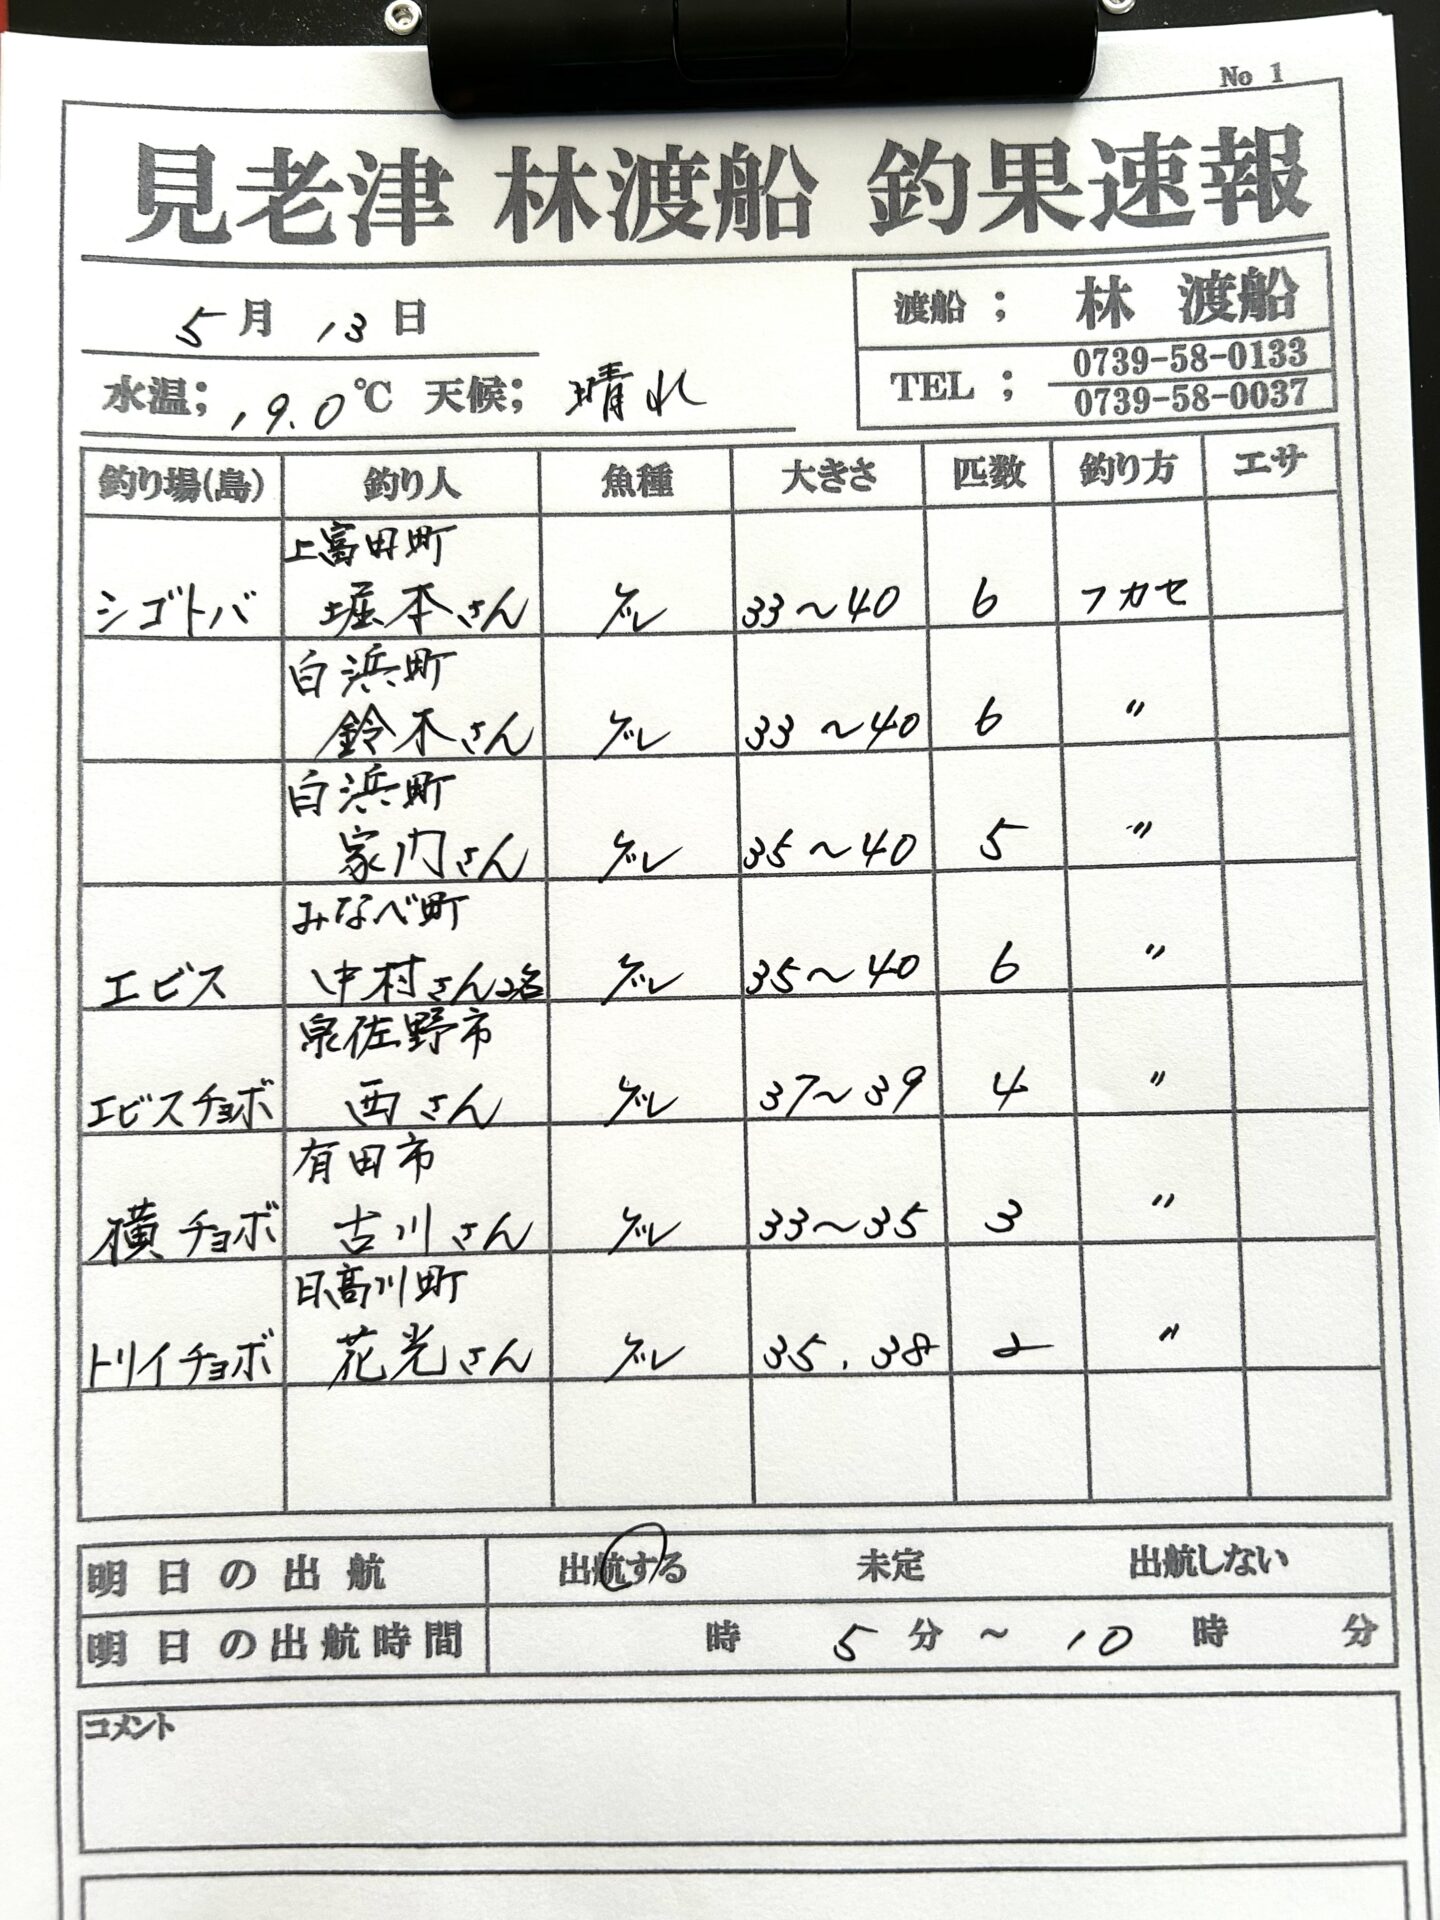 No 1
見老津 林渡船 釣果速報
5月 13日
渡船 ; 林 渡船
水温; 19.0℃ 天候; 晴れ
TEL ; 0739-58-0133
0739-58-0037
釣り場(島) 釣り人 魚種 大きさ 匹数 釣り方 エサ
上富田町
シゴトバ 堀本さん グレ 33〜40 6 フカセ
白浜町
鈴木さん グレ 33〜40 6 〃
白浜町
家内さん グレ 35〜40 5 〃
みなべ町
エビス 中村さん2名 グレ 35〜40 6 〃
泉佐野市
エビスチョボ 西さん グレ 37〜39 4 〃
有田市
横チョボ 古川さん グレ 33〜35 3 〃
日高川町
トリイチョボ 花光さん グレ 35.38 2 〃
明日の出航 出航する 未定 出航しない
明日の出航時間 時 5分 ~ 10時 分
コメント